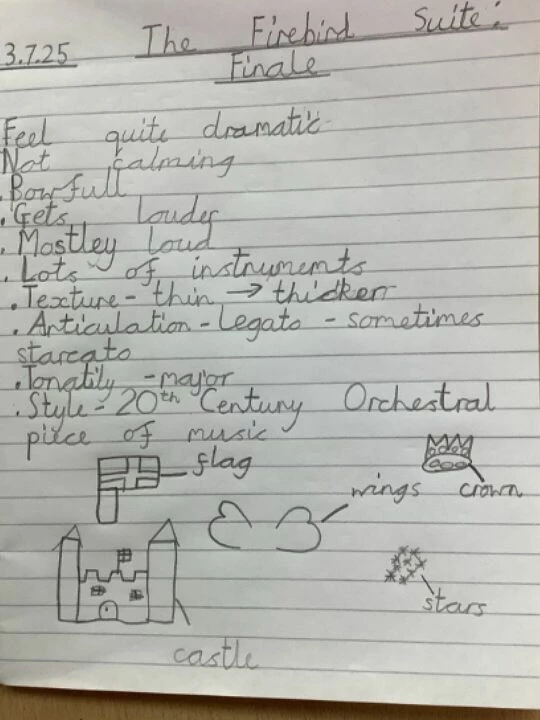 3.7.25 The Firebird Suite:
Finale
Feel quite dramatic
Not calming
. Bowfull
. Gets louder
. Mostley loud
. Lots of instruments
. Texture - thin → thicker
. Articulation - Legato - sometimes
starcato
. Tonatily - major
. Style - 20th Century Orchestral
piece of music
flag
wings crown
stars
castle